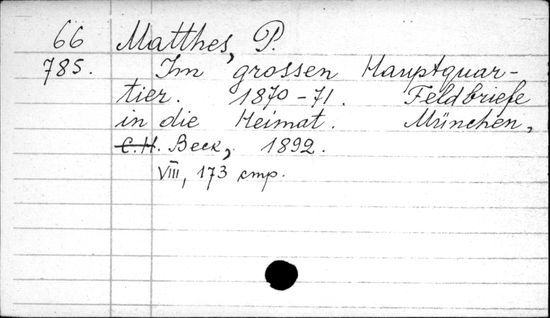 66 Matthes, P.
785. Im grossen Hauptquar-
tier. 1870-71. Feldbriefe
in die Heimat. München,
C.H. Beck, 1892.
VIII, 173 стр.